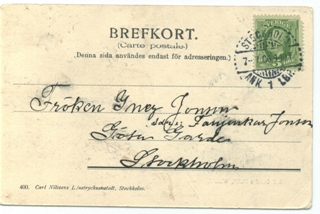 BREFKORT.
(Carte postale)
(Denna sida användes endast för adresseringen.)
SVERIGE
STOCKHOLM
Fröken Inez Jonson
Fanjunkar Jonson
Göta Garde
Stockholm
400. Carl Nilssons Ljustrycksanstalt, Stockholm.